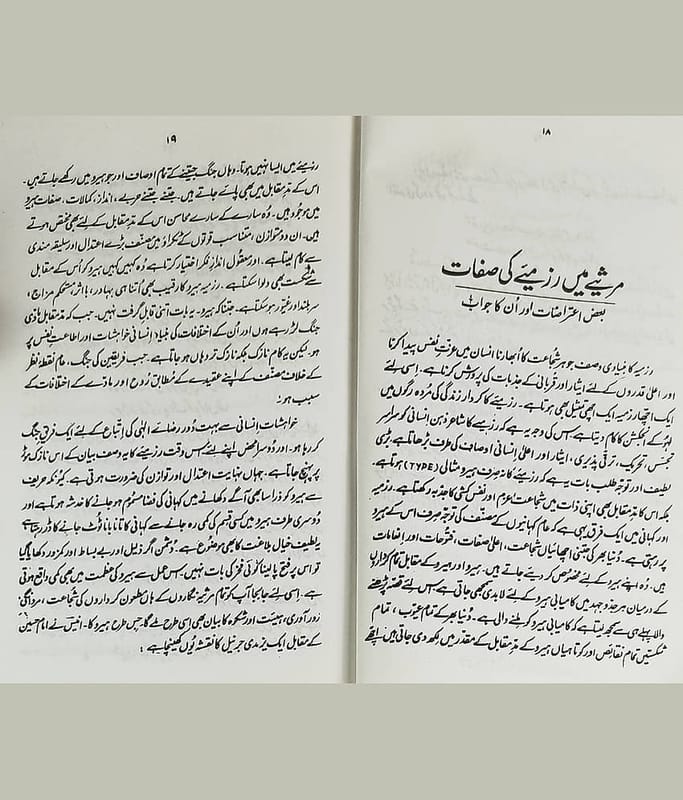 ۱۸
مرثیے میں رزمیئے کی صفات
بعض اعتراضات اور اُن کا جواب
رزمیہ کا بنیادی وصف جوہرِ شجاعت کا اُبھارنا انسان میں عزتِ نفس پیدا کرنا
اور اعلیٰ قدروں کے لئے ایثار اور قربانی کے جذبات کی پرورش کرنا ہے۔ اسی لئے
ایک اچھا رزمیہ ایک اچھی تمثیل بھی ہوتا ہے۔ رزمیئے کا کردار زندگی کی مُردہ رگوں میں
لہو کے انجکشن کا کام دیتا ہے جس کی وجہ یہ ہے کہ رزمیے کا شاعر ذہنِ انسانی کو سراسر
تجسّس، تحریک، ترقی پذیری، ایثار اور اعلیٰ انسانی اوصاف کی طرف بڑھاتا ہے۔ بڑی
لطیف اور توجہ طلب بات یہ ہے کہ رزمیئے کا نہ صرف ہیرو مثالی (TYPE) ہوتا ہے
بلکہ اس کا مدِّ مقابل بھی اپنی ذات میں شجاعت، عزم اور نفس کشی کا جذبہ رکھتا ہے۔ رزمیہ
اور کہانی میں ایک فرق یہ بھی ہے کہ عام کہانیوں کے مصنّف کی توجہ صرف اس کے ہیرو
پر رہتی ہے۔ دُنیا بھر کی جتنی اچھائیاں شجاعت، اعلیٰ صفات، فتوحات اور انعامات
ہیں۔ وُہ اپنے ہیرو کے لئے مخصُوص کر دیئے جاتے ہیں۔ ہیرو اور ہیرو کے مقابل تمام کرداروں
کے درمیان ہر جدّ و جہد میں کامیابی ہیرو کے لئے لابدی سمجھی جاتی ہے جس لئے قصّہ پڑھنے
والا پہلے ہی سمجھ لیتا ہے کہ کامیابی ہیرو کو ملنے والی ہے۔ دُنیا بھر کے تمام عیُوب، تمام
شکستیں تمام نقائص اور کوتاہیاں ہیرو کے مدِّ مقابل کے مقدر میں لکھ دی جاتی ہیں۔ اچھے
۱۹
رزمیئے میں ایسا نہیں ہوتا۔ وہاں جنگ جیتنے کے تمام اوصاف اور جو ہیرو میں رکھے جاتے ہیں۔
اس کے مدِّ مقابل میں بھی پائے جاتے ہیں۔ جتنے جتنے حربے، انداز، کمالات، صفات ہیرو
میں موجُود ہیں۔ وُہ سارے کے سارے محاسن اس کے مدِّ مقابل کے لئے بھی مختص ہوتے
ہیں۔ ان دو متوازن، متناسب قوتوں کے ٹکراؤ میں مصنّف بڑے اعتدال اور سلیقہ مندی
سے کام لیتا ہے۔ اور معقول اندازِ فکر اختیار کرتا ہے وُہ کہیں کہیں ہیرو کو اُس کے مقابل
سے شکست بھی دلوا سکتا ہے۔ رزمیہ ہیرو کا رقیب بھی اُتنا ہی بہادر، بااثر، مستحکم مزاج،
سربلند اور غیّور ہو سکتا ہے۔ جتنا کہ ہیرو۔ یہ بات آتنی قابل گرفت نہیں۔ جب کہ مدِّ مقابل مادّی
جنگ لڑ رہے ہوں اور اُن کے اختلافات کی بنیاد انسانی خواہشات اور اطاعتِ نفس پر
ہو۔ لیکن یہ کام نازک، بلکہ نازک تر وہاں ہو جاتا ہے۔ جب فریقین کی جنگ، عام نقطۂ نظر
کے خلاف مصنّف کے اپنے عقیدے کے مُطابق رُوح اور مادّے کے اختلافات کے
سبب ہو۔
خواہشاتِ انسانی سے بہت دُور رضائے الٰہی کی اتباع کے لئے ایک فریق جنگ
کر رہا ہو۔ اور دُوسرا محض اپنے لئے بس وقت رزمیئے کا یہ وصف بیان کے اس نازک موڑ
پر پہنچ جاتا ہے۔ جہاں نہایت اعتدال اور توازن کی ضرورت ہوتی ہے۔ کیونکہ حریف
سے ہیرو کو ذرا سا بھی آگے دکھانے میں کہانی کی فضا مسمُوم ہو جانے کا خدشہ ہوتا ہے اور
دُوسری طرف ہیرو میں کسی قسم کی کمی رہ جانے سے کہانی کا تانا بانا ٹوٹ جانے کا ڈر رہتا ہے
یہ لطیف خیال بلاغت کا بھی موضوع ہے۔ دُشمن اگر ذلیل اور بے بساط اور کمزور دکھایا گیا
تو اس پر فتح پا لینا کوئی فخر کی بات نہیں۔ جس عمل سے ہیرو کی عظمت میں بھی کمی واقع ہوتی
ہے۔ اِسی لئے جا بجا آپ کو تمام مرثیہ نگاروں کے ہاں ملعُون کرداروں کی شجاعت، مردانگی،
زور آوری، ہیبت اور شکوہ کا بیان بھی اسی طرح ملے گا جس طرح ہیرو کا۔ انیسؔ نے امام حسینؑ
کے مقابل ایک یزیدی جرنیل کا نقشہ یُوں کھینچا ہے :